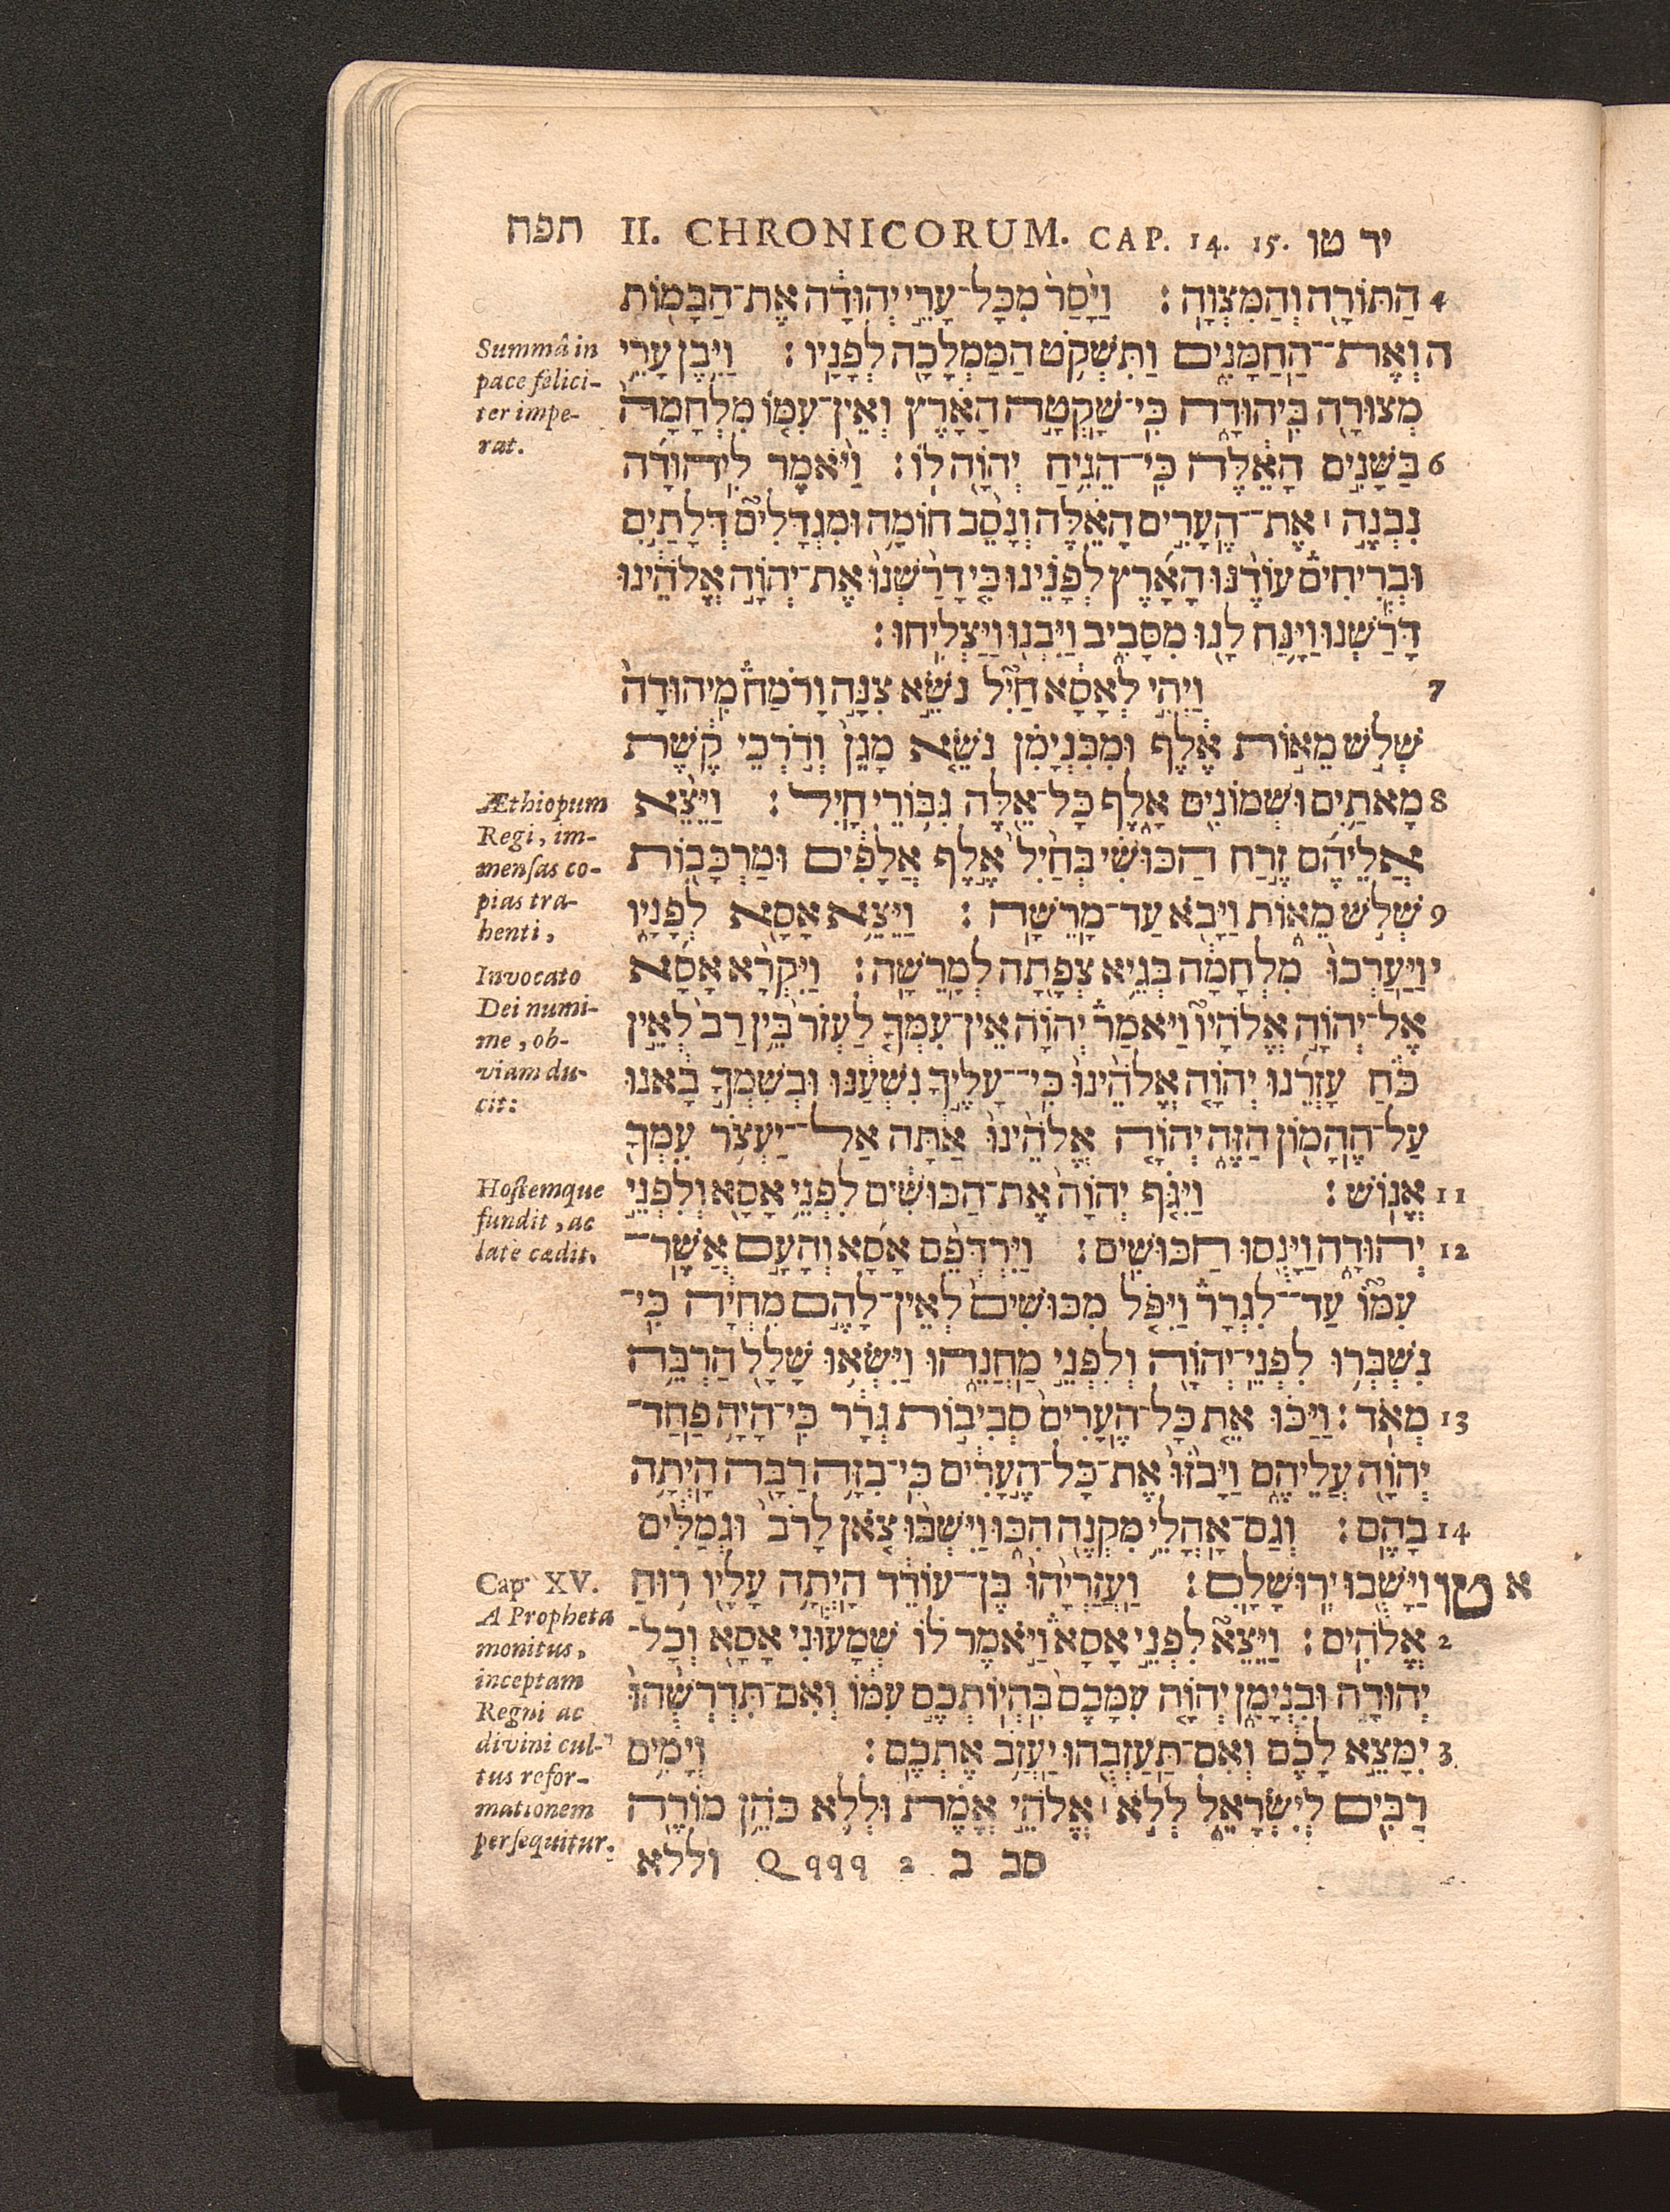 תפח II. CHRONICORUM. CAP. 14. 15. יד טו
4 הַתּוֹרָ֖ה וְהַמִּצְוָֽה׃ וַיָּ֙סַר֙ מִכָּל־עָרֵ֣י יְהוּדָ֔ה אֶת־הַבָּמ֖וֹת
ה וְאֶת־הַֽחַמָּנִ֑ים וַתִּשְׁקֹ֥ט הַמַּמְלָכָ֖ה לְפָנָֽיו׃ וַיִּ֛בֶן עָרֵ֥י
מְצוּרָ֖ה בִּֽיהוּדָ֑ה כִּֽי־שָׁקְטָ֣ה הָאָ֗רֶץ וְאֵין־עִמּ֤וֹ מִלְחָמָה֙
6 בַּשָּׁנִ֣ים הָאֵ֔לֶּה כִּֽי־הֵנִ֥יחַ יְהוָ֖ה לֽוֹ׃ וַיֹּ֨אמֶר לִֽיהוּדָ֜ה
נִבְנֶ֣ה ׀ אֶת־הֶעָרִ֣ים הָאֵ֗לֶּה וְנָסֵ֨ב חוֹמָ֣ה וּמִגְדָּלִים֮ דְּלָתַ֣יִם
וּבְרִיחִים֒ עוֹדֶ֨נּוּ הָאָ֜רֶץ לְפָנֵ֗ינוּ כִּ֤י דָרַ֙שְׁנוּ֙ אֶת־יְהוָ֣ה אֱלֹהֵ֔ינוּ
דָּרַ֕שְׁנוּ וַיָּ֥נַֽח לָ֖נוּ מִסָּבִ֑יב וַיִּבְנ֖וּ וַיַּצְלִֽיחוּ׃
7 וַיְהִ֣י לְאָסָ֗א חַיִל֮ נֹשֵׂ֣א צִנָּ֣ה וָרֹמַח֒ מִֽיהוּדָה֙
שְׁלֹ֣שׁ מֵא֣וֹת אֶ֔לֶף וּמִבִּנְיָמִ֗ן נֹשְׂאֵ֤י מָגֵן֙ וְדֹ֣רְכֵי קֶ֔שֶׁת
8 מָאתַ֥יִם וּשְׁמוֹנִ֖ים אָ֑לֶף כָּל־אֵ֖לֶּה גִּבּ֥וֹרֵי חָֽיִל׃ וַיֵּצֵ֨א
אֲלֵיהֶ֜ם זֶ֣רַח הַכּוּשִׁ֗י בְּחַ֙יִל֙ אֶ֣לֶף אֲלָפִ֔ים וּמַרְכָּב֖וֹת
9 שְׁלֹ֣שׁ מֵא֑וֹת וַיָּבֹ֖א עַד־מָרֵשָֽׁה׃ וַיֵּצֵ֥א אָסָ֖א לְפָנָ֑יו
י וַיַּֽעַרְכוּ֙ מִלְחָמָ֔ה בְּגֵ֥יא צְפָ֖תָה לְמָרֵשָֽׁה׃ וַיִּקְרָ֨א אָסָ֜א
אֶל־יְהוָ֣ה אֱלֹהָיו֮ וַיֹּאמַר֒ יְהוָ֗ה אֵֽין־עִמְּךָ֤ לַעְזוֹר֙ בֵּ֥ין רַב֙ לְאֵ֣ין
כֹּ֔חַ עָזְרֵ֜נוּ יְהוָ֤ה אֱלֹהֵ֙ינוּ֙ כִּֽי־עָלֶ֣יךָ נִשְׁעַ֔נּוּ וּבְשִׁמְךָ֣ בָ֔אנוּ
עַל־הֶהָמ֖וֹן הַזֶּ֑ה יְהוָ֤ה אֱלֹהֵ֙ינוּ֙ אַ֔תָּה אַל־יַעְצֹ֥ר עִמְּךָ֖
11 אֱנֽוֹשׁ׃ וַיִּגֹּ֤ף יְהוָה֙ אֶת־הַכּוּשִׁ֔ים לִפְנֵ֥י אָסָ֖א וְלִפְנֵ֣י
12 יְהוּדָ֑ה וַיָּנֻ֖סוּ הַכּוּשִֽׁים׃ וַיִּרְדְּפֵ֨ם אָסָ֜א וְהָעָ֣ם אֲשֶׁר־
עִמּוֹ֮ עַד־לִגְרָר֒ וַיִּפֹּ֤ל מִכּוּשִׁים֙ לְאֵ֣ין־לָהֶ֣ם מִֽחְיָ֔ה כִּֽי־
נִשְׁבְּר֥וּ לִפְנֵֽי־יְהוָ֖ה וְלִפְנֵ֣י מַחֲנֵ֑הוּ וַיִּשְׂא֥וּ שָׁלָ֖ל הַרְבֵּ֥ה
13 מְאֹֽד׃ וַיַּכּ֗וּ אֵ֤ת כָּל־הֶֽעָרִים֙ סְבִיב֣וֹת גְּרָ֔ר כִּֽי־הָיָ֥ה פַֽחַד־
יְהוָ֖ה עֲלֵיהֶ֑ם וַיָּבֹ֙זּוּ֙ אֶת־כָּל־הֶ֣עָרִ֔ים כִּֽי־בִזָּ֥ה רַבָּ֖ה הָיְתָ֥ה
14 בָהֶֽם׃ וְגַם־אָהֳלֵ֥י מִקְנֶ֖ה הִכּ֑וּ וַיִּשְׁבּ֨וּ צֹ֤אן לָרֹב֙ וּגְמַלִּ֔ים
א טו וַיָּשֻׁ֖בוּ יְרֽוּשָׁלִָֽם׃ וַעֲזַרְיָ֙הוּ֙ בֶּן־עוֹדֵ֔ד הָיְתָ֥ה עָלָ֖יו ר֥וּחַ
2 אֱלֹהִֽים׃ וַיֵּצֵא֮ לִפְנֵ֣י אָסָא֒ וַיֹּ֣אמֶר ל֔וֹ שְׁמָע֕וּנִי אָסָ֖א וְכָל־
יְהוּדָ֣ה וּבִנְיָמִ֑ן יְהוָ֤ה עִמָּכֶם֙ בִּֽהְיֽוֹתְכֶ֣ם עִמּ֔וֹ וְאִֽם־תִּדְרְשֻׁ֙הוּ֙
3 יִמָּצֵ֣א לָכֶ֔ם וְאִם־תַּעַזְבֻ֖הוּ יַעֲזֹ֥ב אֶתְכֶֽם׃ וְיָמִ֥ים
רַבִּ֖ים לְיִשְׂרָאֵ֑ל לְלֹ֣א ׀ אֱלֹהֵ֣י אֱמֶ֗ת וּלְלֹ֛א כֹּהֵ֥ן מוֹרֶ֖ה
סב ב Qqqq 2 וללא
Summâ in
pace felici-
ter impe-
rat.
Æthiopum
Regi, im-
mensas co-
pias tra-
henti,
Invocato
Dei numi-
me, ob-
viam du-
cit:
Hostemque
fundit, ac
late cædit.
Cap. XV.
A Propheta
monitus,
inceptam
Regni ac
divini cul-
tus refor-
mationem
persequitur.